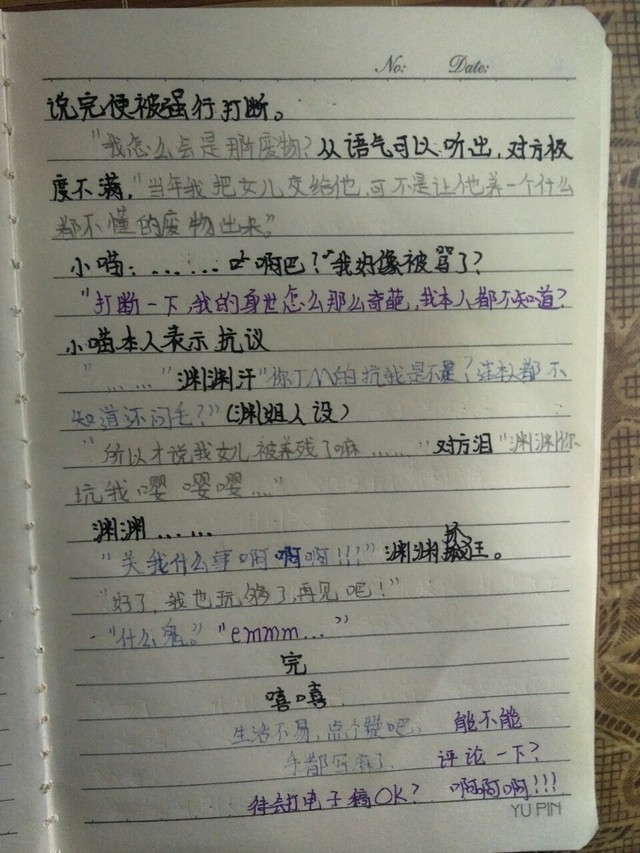 No: Date:
说完便被强行打断。
"我怎么会是那废物?从语气可以听出,对方极
度不满,"当年我把女儿交给他,可不是让他养一个什么
都不懂的废物出来"
小喵:………啊吧?"我好像被骂了?
"打断一下,我的身世怎么那么奇葩,我本人都不知道?
小喵本人表示抗议
"……"渊渊汗"你TM的坑我是不是?连我都不
知道还问毛?"(渊姐人设)
"所以才说我女儿被养残了嘛……"对方泪"渊渊你
坑我嘤嘤嘤…"
渊渊……
"关我什么事啊啊啊!!!"渊渊王。
"好了,我也玩够了,再见吧!"
"什么鬼。""emmm…"
完
嘻嘻
生活不易,点个赞吧。 能不能
手都写麻了 评论一下?
待去打电子稿OK? 啊啊啊!!!
YU PIN